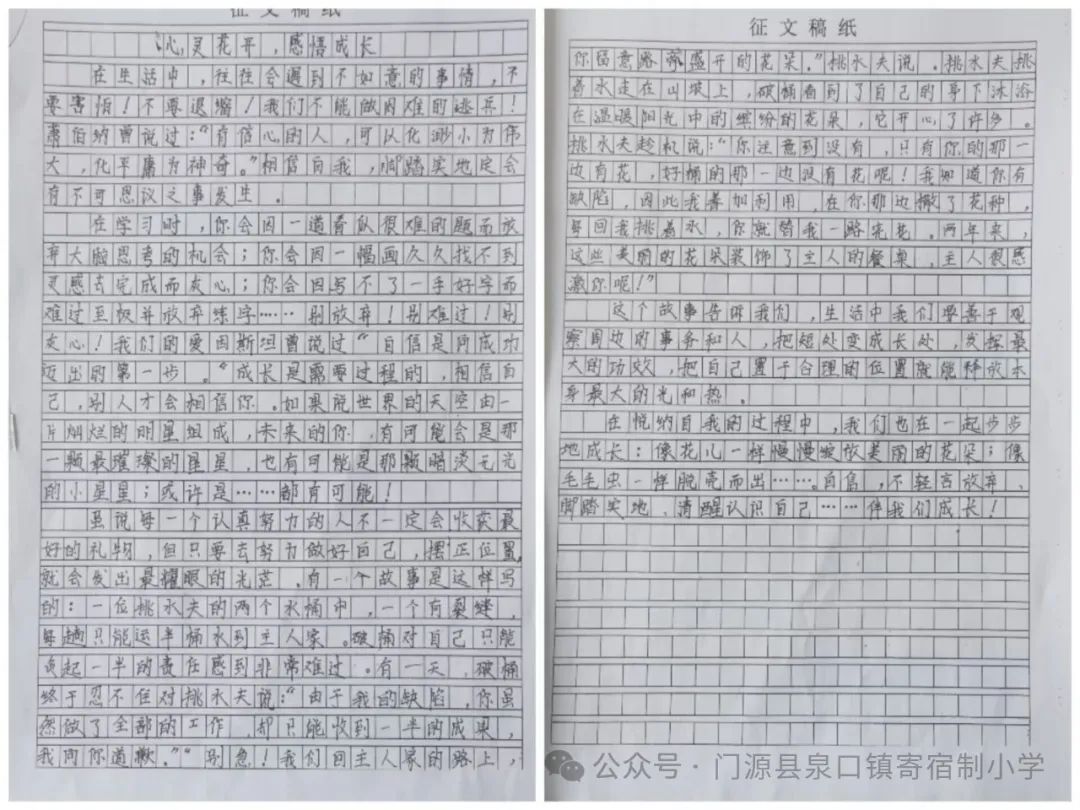 征文稿纸
心灵花开，感悟成长
在生活中，往往会遇到不如意的事情，不
要害怕！不要退缩！我们不能做困难的逃兵！
萧伯纳曾说过：“有信心的人，可以化渺小为伟
大，化平庸为神奇。”相信自我，脚踏实地定会
有不可思议之事发生。
在学习时，你会因一道看似很难的题而放
弃大脑思考的机会；你会因一幅画久久找不到
灵感去完成而灰心；你会因写不了一手好字而
难过至极并放弃练字……别放弃！别难过！别
灰心！我们的爱因斯坦曾说过“自信是向成功
迈出的第一步。“成长是需要过程的，相信自
己，别人才会相信你。如果说世界的天空由一
片灿烂的明星组成，未来的你，有可能会是那
一颗最璀璨的星星，也有可能是那颗暗淡无光
的小星星；或许是……都有可能！
虽说每一个认真努力的人不一定会收获最
好的礼物，但只要去努力做好自己，摆正位置，
就会发出最耀眼的光芒。有一个故事是这样写
的：一位挑水夫的两个水桶中，一个有裂缝，
每趟只能运半桶水到主人家。破桶对自己只能
负起一半的责任感到非常难过。有一天，破桶
终于忍不住对挑水夫说：“由于我的缺陷，你虽
然做了全部的工作，却只能收到一半的成果，
我向你道歉。”“别急！我们回主人家的路上，
征文稿纸
你留意路旁盛开的花朵。”挑水夫说。挑水夫挑
着水走在山坡上，破桶看到了自己的享下沐浴
在温暖阳光中的缤纷的花朵，它开心了许多。
挑水夫趁机说：“你注意到没有，只有你的那一
边有花，好桶的那一边没有花呢！我知道你有
缺陷，因此我善加利用，在你那边撒了花种，
每回我挑着水，你就替我一路浇花。两年来，
这些美丽的花朵装饰了主人的餐桌，主人很感
激你呢！”
这个故事告诉我们，生活中我们要善于观
察周边的事务和人，把短处变成长处，发挥最
大的功效，把自己置于合理的位置就能释放本
身最大的光和热。
在悦纳自我的过程中，我们也在一起步步
地成长：像花儿一样慢慢绽放美丽的花朵；像
毛毛虫一样脱壳而出……。自信、不轻言放弃、
脚踏实地、清醒认识自己……伴我们成长！
公众号·门源县泉口镇寄宿制小学